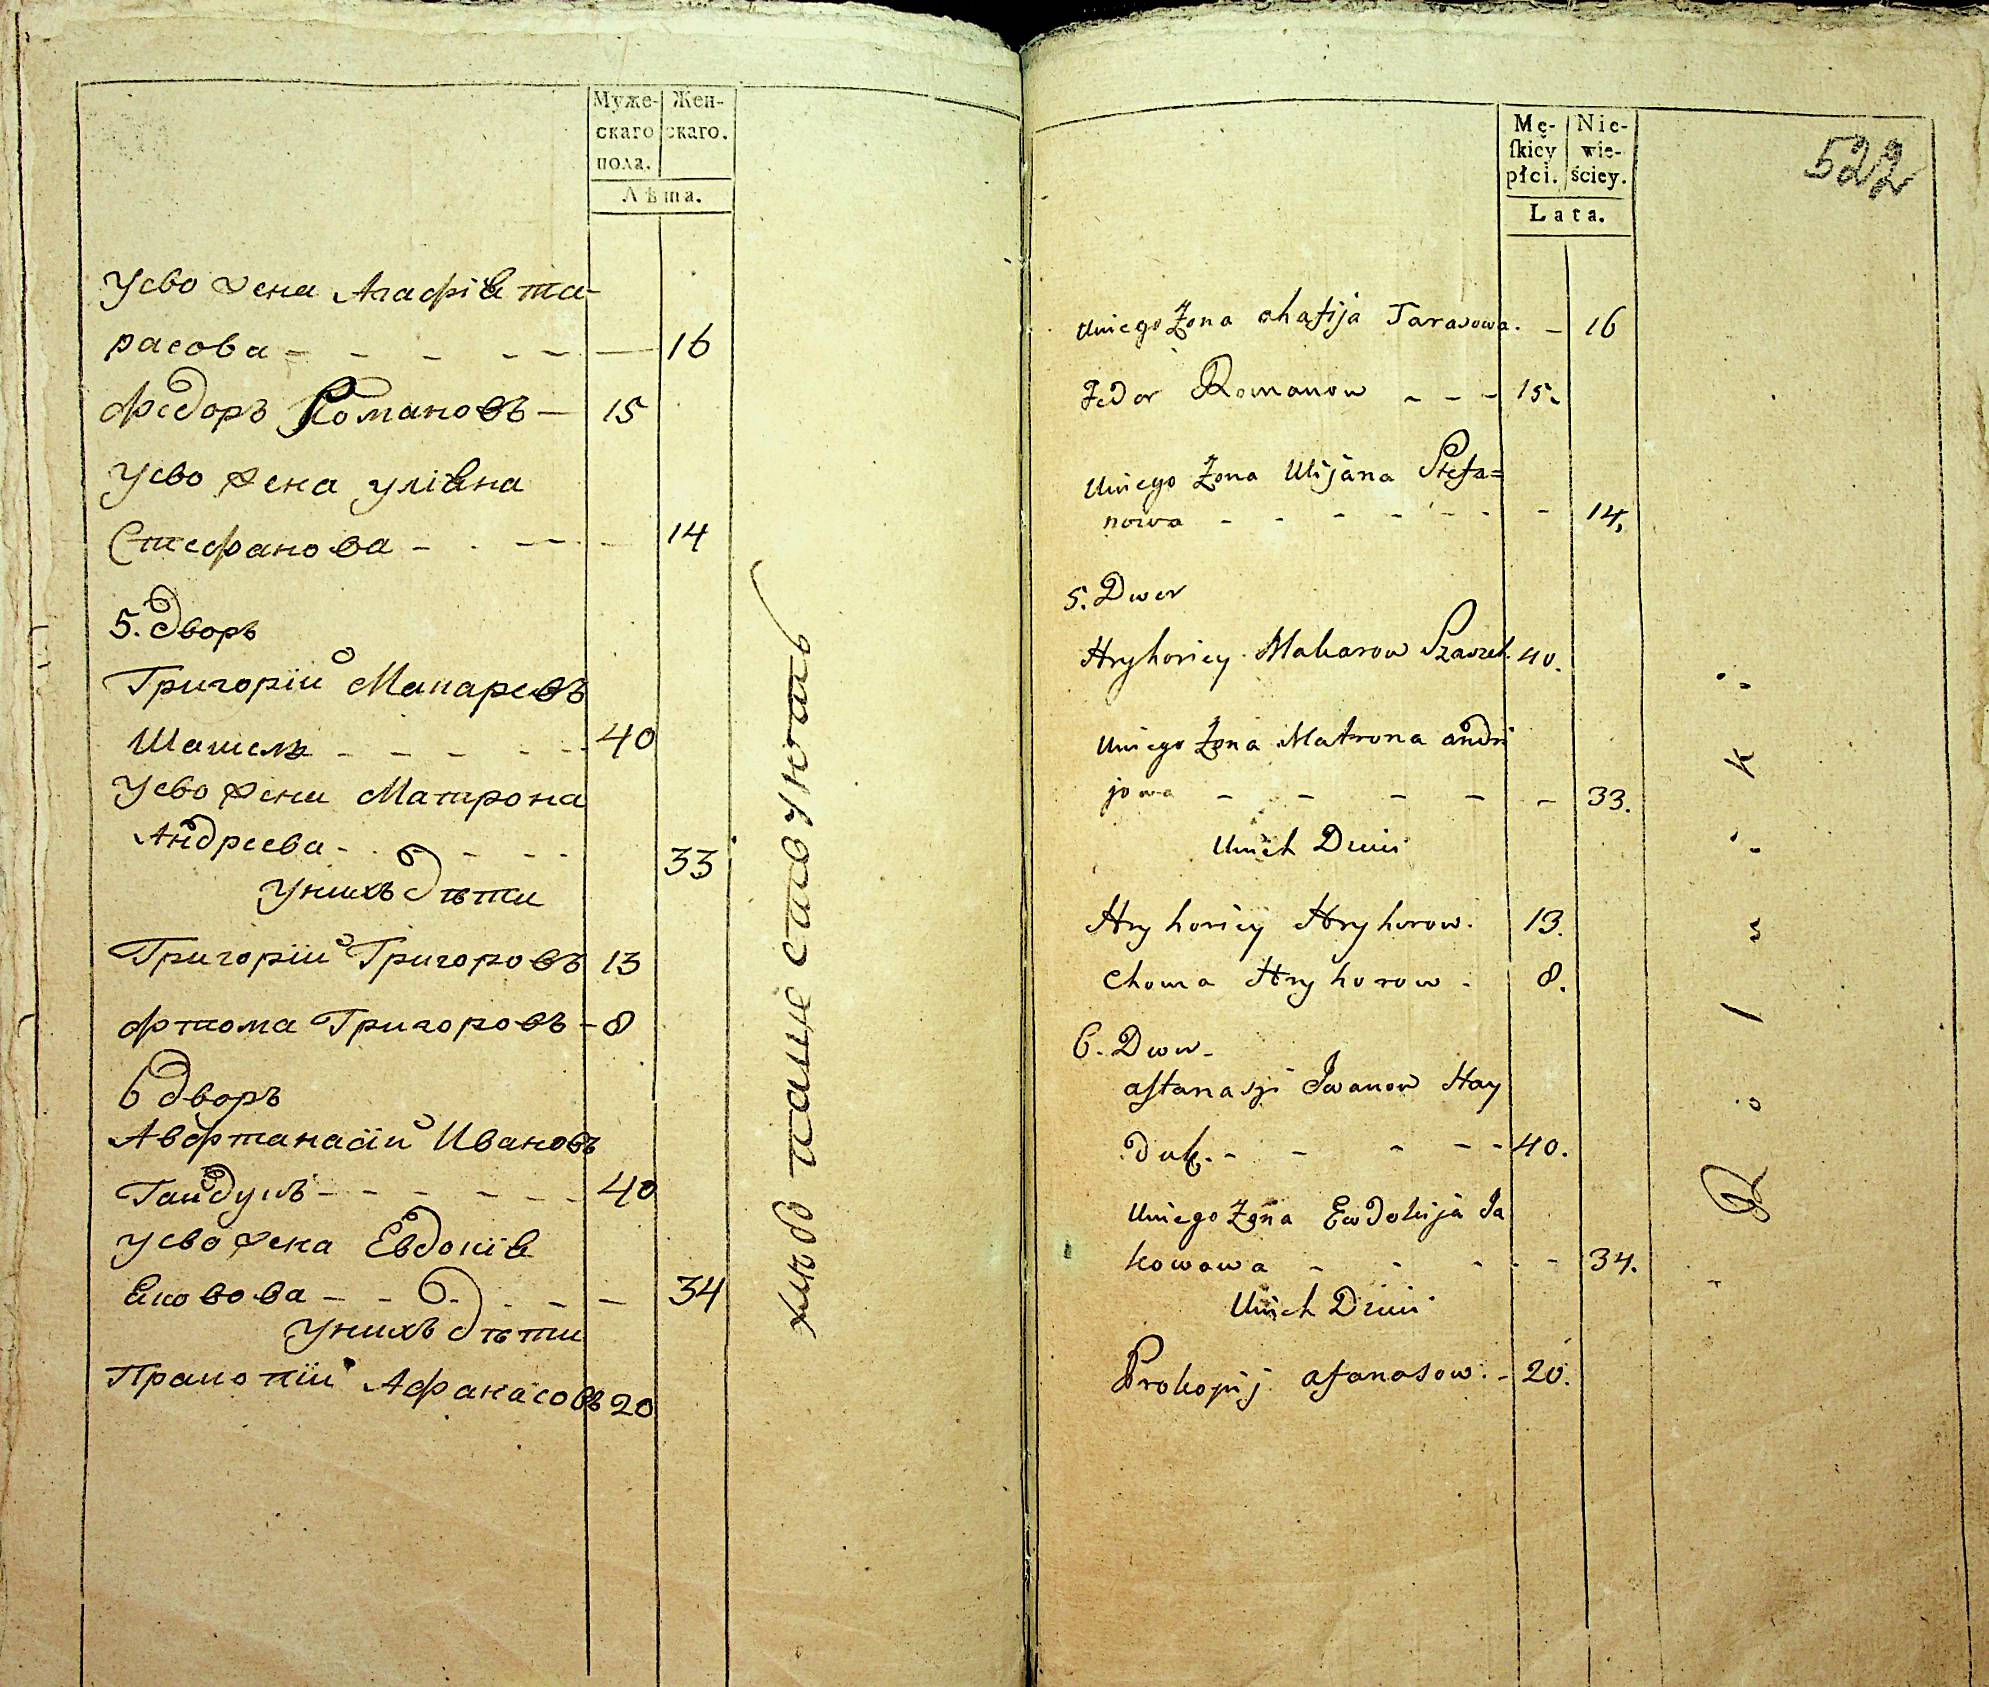 Муже-
скаго
пола.
Жен-
скаго.
Лѣта.
Уево жена Агафія та-
расова - - - - - 16
Федоръ Романовъ - 15
Уево жена уліяна
Стефанова - - - 14
5. дворъ
Григорій Макаровъ
Шашель - - - - - 40
Уево жена Матрона
Андреева - - - - - 33
Унихъ дѣти
Григорій Григоровъ 13
Фтома Григоровъ - 8
6 дворъ
Авфтанасій Ивановъ
Гайдукъ - - - - - 40
Уево жена Евдокія
Яковова - - - - - 34
Унихъ дѣти
Пракопій Афанасовъ 20
хлѣбо пашествуютъ
522
Mę-
ſkiéy
płci.
Nie-
wie-
ściey.
Lata.
Uniego Żona ahafija Tarasowa. - 16
Fedor Romanow - - - 15.
Uniego Żona Ulijana Stefa=
nowa - - - - - - - 14,
5. Dwor
Hryhoriey Makarow Szaszel. 40.
Uniego Żona Matrona andri
jowa - - - - - 33.
Unich Dzieci
Hryhoriey Hryhorow. 13.
Choma Hryhorow. 8.
6. Dwor
aftanazi Iwanow Hay
Duk. - - - - - 40.
Uniego Żona Ewdokija Ja
kowowa - - - - - 34.
Unich Dzieci
Prokopij afanasow. - 20.